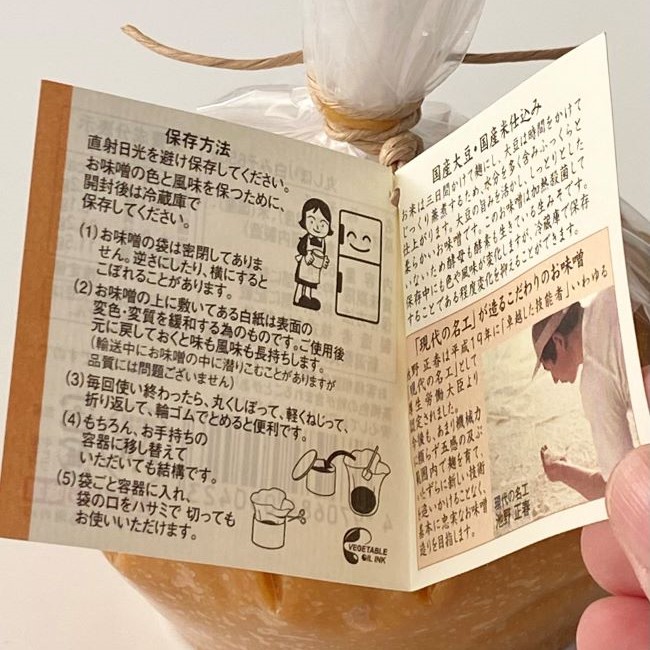 保存方法
直射日光を避け保存してください。
お味噌の色と風味を保つために、
開封後は冷蔵庫で
保存してください。
(1)お味噌の袋は密閉してありま
せん。逆さにしたり、横にすると
こぼれることがあります。
(2)お味噌の上に敷いてある白紙は表面の
変色・変質を緩和する為のものです。ご使用後
元に戻しておくと味も風味も長持ちします。
(輸送中にお味噌の中に潜りこむことがありますが
品質には問題ございません)
(3)毎回使い終わったら、丸くしぼって、軽くねじって、
折り返して、輪ゴムでとめると便利です。
(4)もちろん、お手持ちの
容器に移し替えて
いただいても結構です。
(5)袋ごと容器に入れ、
袋の口をハサミで切っても
お使いいただけます。
VEGETABLE
OIL INK
国産大豆・国産米仕込み
お米は三日間かけて麹にし、大豆は時間をかけて
じっくり蒸煮するため、水分を多く含みふっくらと
仕上がります。大豆の旨みを活かし、しっとりとした
柔らかいお味噌です。このお味噌は加熱殺菌して
いないため酵母も酵素も生きている生みそです。
保存中にも色や風味が変化しますが、冷蔵庫で保存
することである程度変化を抑えることができます。
「現代の名工」が造るこだわりのお味噌
池野 正春は平成19年に「卓越した技能者」いわゆる
「現代の名工」として
厚生労働大臣より
認定されました。
今後も、あまり機械力
に頼らず五感の及ぶ
範囲内で麹を育て、
いたずらに新しい技術
を追いかけることなく、
基本に忠実なお味噌
造りを目指します。
現代の名工
池野 正春